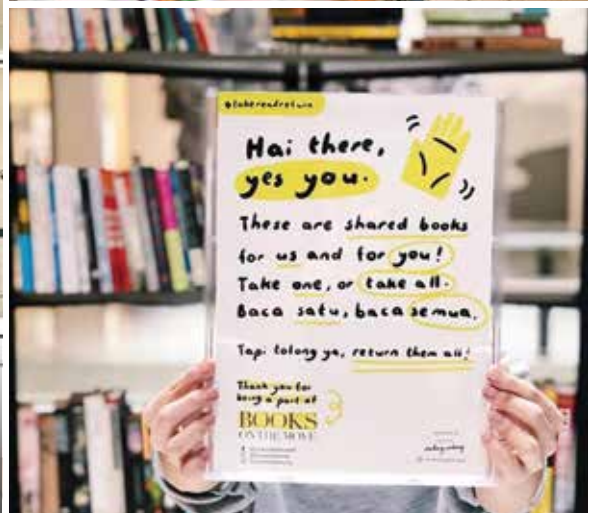 #takereadreturn
Hai there,
yes you.
These are shared books
for us and for you!
Take one, or take all.
Baca satu, baca semua.
Tapi tolong ya, return them all!
Thank you for
being a part of
BOOKS
ON THE MOVE